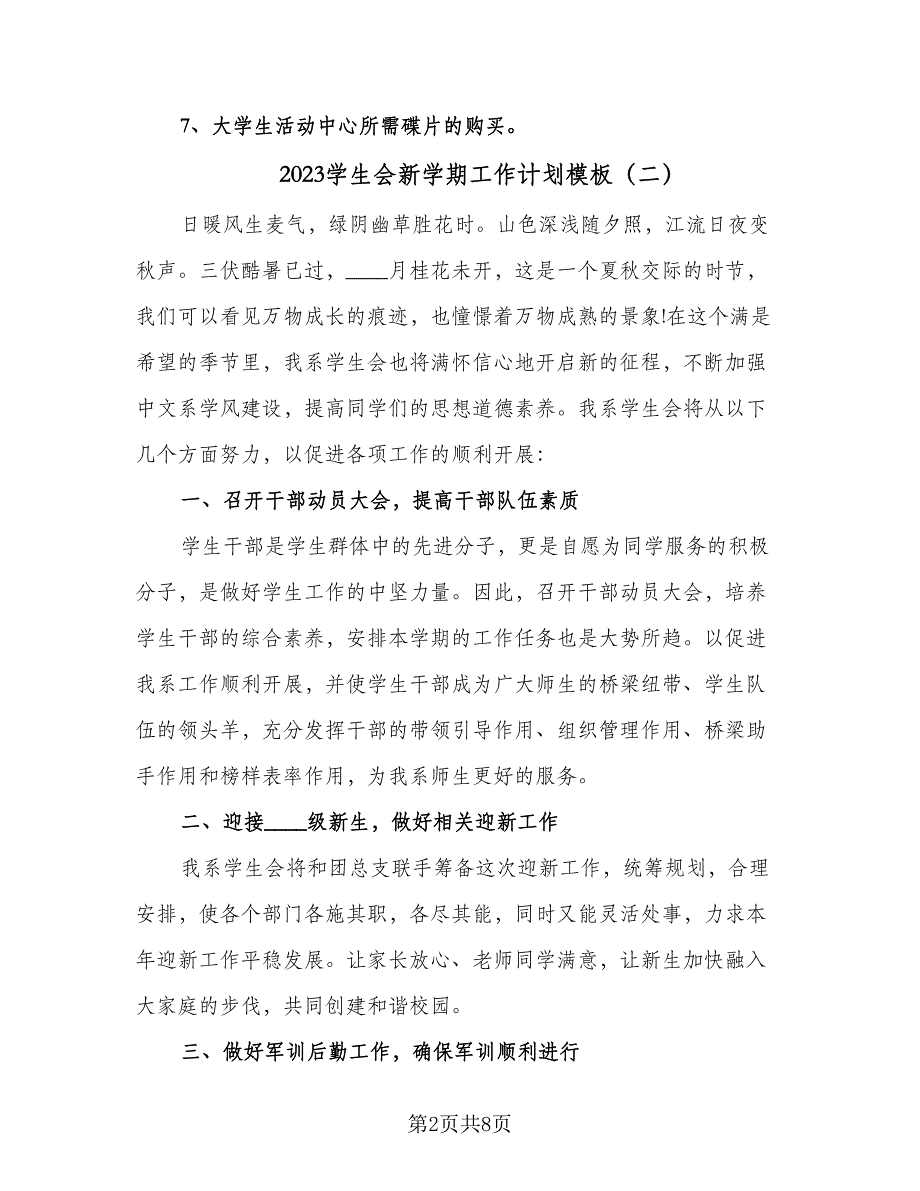 7、大学生活动中心所需碟片的购买。
2023学生会新学期工作计划模板（二）
日暖风生麦气，绿阴幽草胜花时。山色深浅随夕照，江流日夜变
秋声。三伏酷暑已过，____月桂花未开，这是一个夏秋交际的时节，
我们可以看见万物成长的痕迹，也憧憬着万物成熟的景象!在这个满是
希望的季节里，我系学生会也将满怀信心地开启新的征程，不断加强
中文系学风建设，提高同学们的思想道德素养。我系学生会将从以下
几个方面努力，以促进各项工作的顺利开展：
一、召开干部动员大会，提高干部队伍素质
学生干部是学生群体中的先进分子，更是自愿为同学服务的积极
分子，是做好学生工作的中坚力量。因此，召开干部动员大会，培养
学生干部的综合素养，安排本学期的工作任务也是大势所趋。以促进
我系工作顺利开展，并使学生干部成为广大师生的桥梁纽带、学生队
伍的领头羊，充分发挥干部的带领引导作用、组织管理作用、桥梁助
手作用和榜样表率作用，为我系师生更好的服务。
二、迎接____级新生，做好相关迎新工作
我系学生会将和团总支联手筹备这次迎新工作，统筹规划，合理
安排，使各个部门各施其职，各尽其能，同时又能灵活处事，力求本
年迎新工作平稳发展。让家长放心、老师同学满意，让新生加快融入
大家庭的步伐，共同创建和谐校园。
三、做好军训后勤工作，确保军训顺利进行
第2页共8页